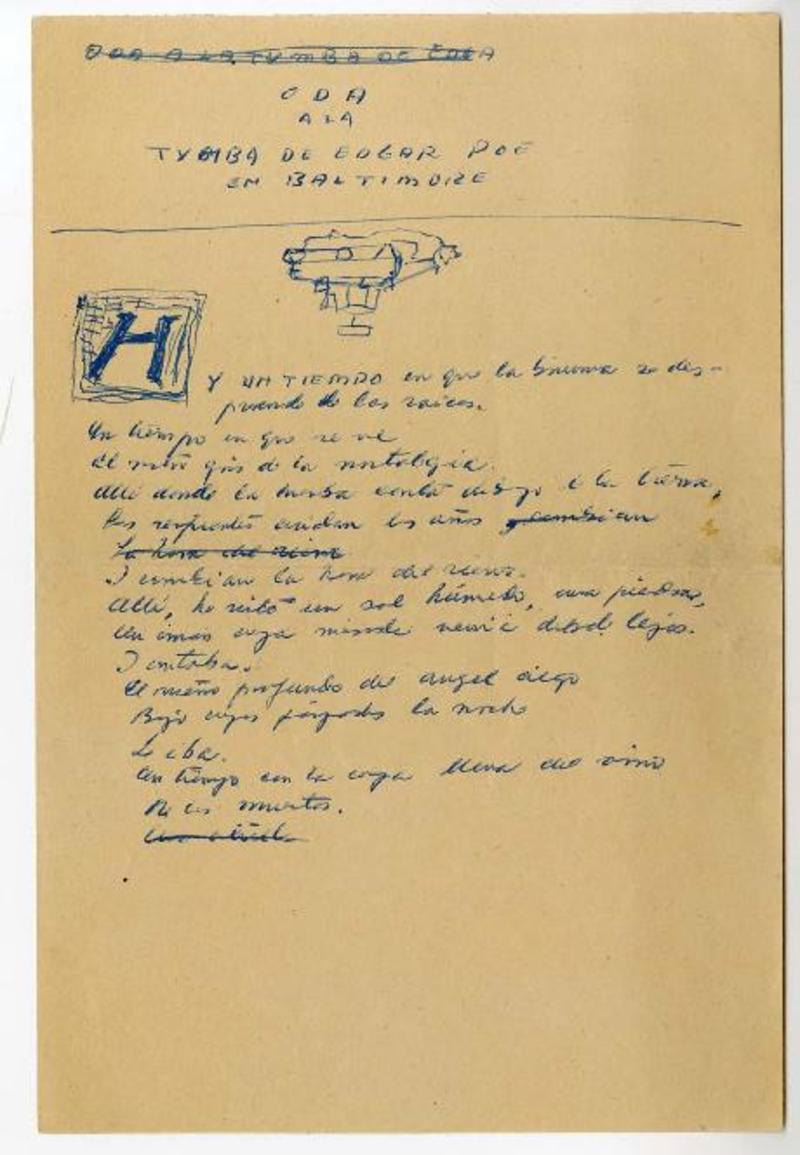 ODA A LA TUMBA DE EDGA
ODA
A LA
TUMBA DE EDGAR POE
EN BALTIMORE
H
Y UN TIEMPO en que la bruma se des-
prende de las raices.
Un tiempo en que se ve
El gris de la nostalgia.
Alli donde la debajo de la tierra,
Las serpientes cuidan los años y cambian
La hora del
I cambian la hora del
Alli, he visto un sol húmedo, una piedra,
Un cuya mirada venia desde lejos.
I entraba.
El sueño profundo del angel ciego
Bajo cuyos párpados la noche
Le iba.
Un tiempo con la copa llena del vino
De los muertos.